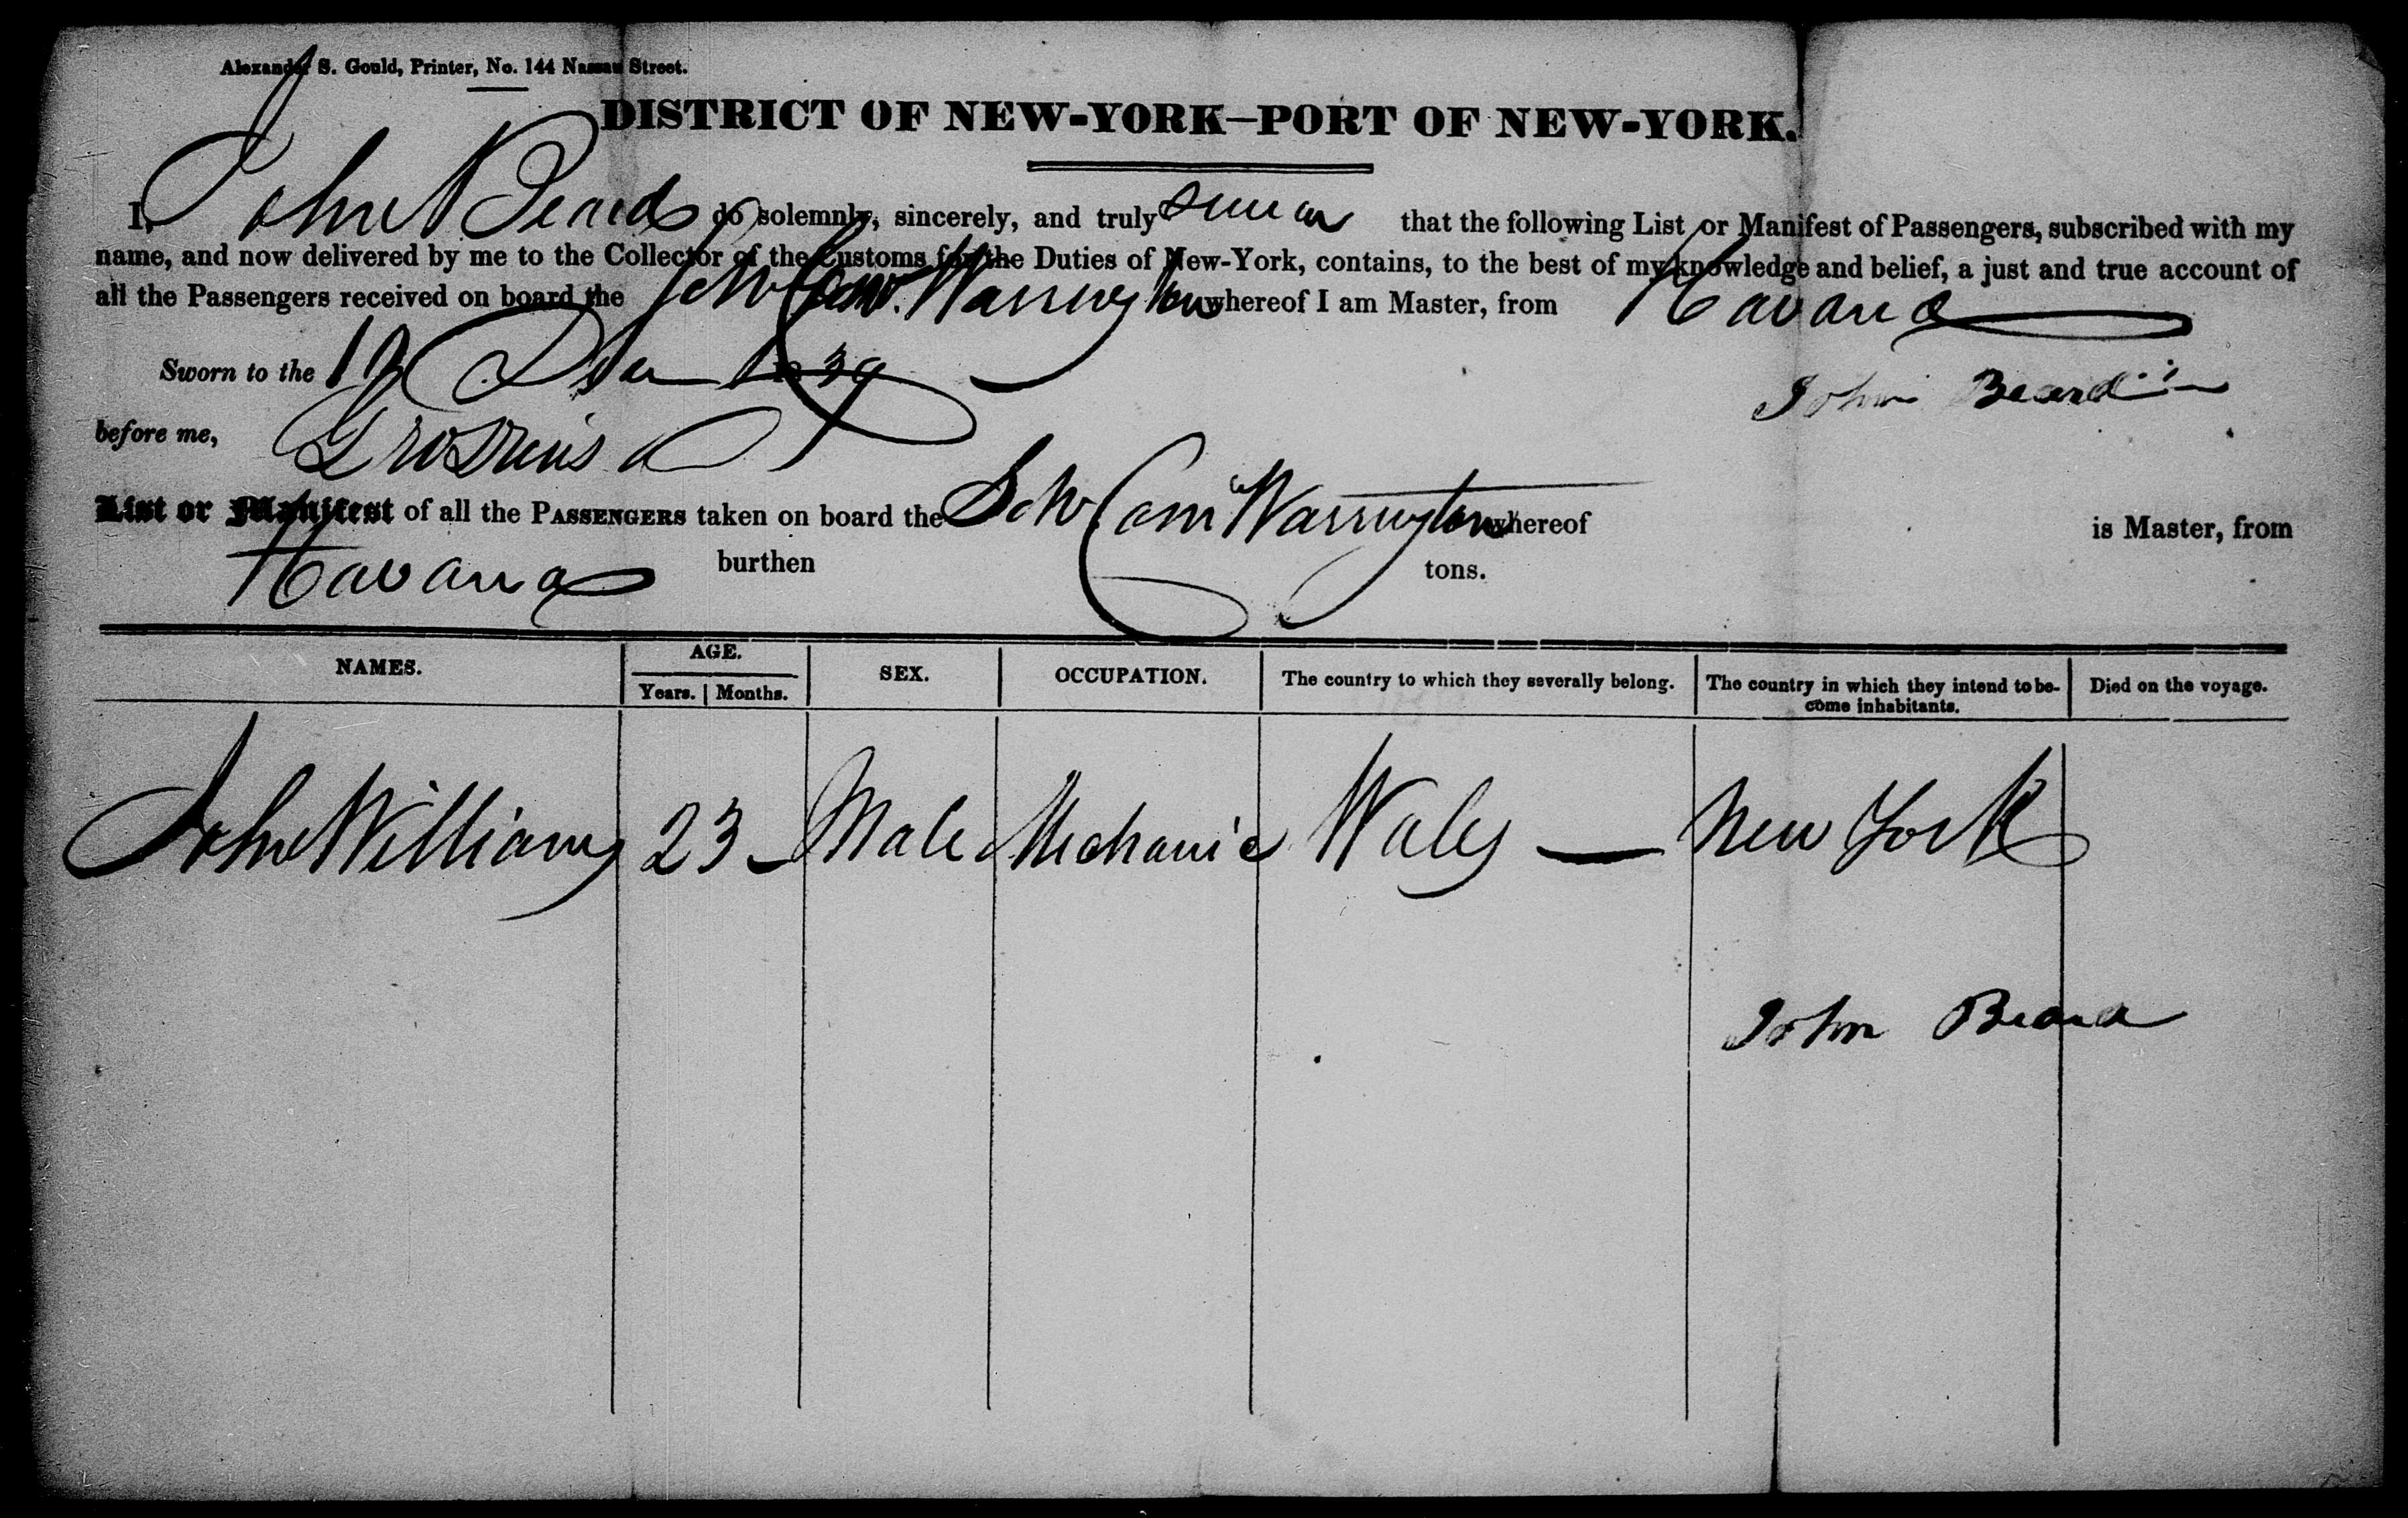 Alexander S. Gould, Printer, No. 144 Nassau Street.
DISTRICT OF NEW-YORK—PORT OF NEW-YORK.
I, John Beard do solemnly, sincerely, and truly swear that the following List or Manifest of Passengers, subscribed with my
name, and now delivered by me to the Collector of the Customs for the Duties of New-York, contains, to the best of my knowledge and belief, a just and true account of
all the Passengers received on board the Schr Com. Warrington whereof I am Master, from Havana
Sworn to the 1839
John Beard
before me,
List or Manifest of all the PASSENGERS taken on board the Schr Com Warrington whereof is Master, from
Havana burthen tons.
NAMES. AGE. SEX. OCCUPATION. The country to which they severally belong. The country in which they intend to be- Died on the voyage.
Years. Months. come inhabitants.
John Williams 23 Male Mechanic Wales — New York
John Beard